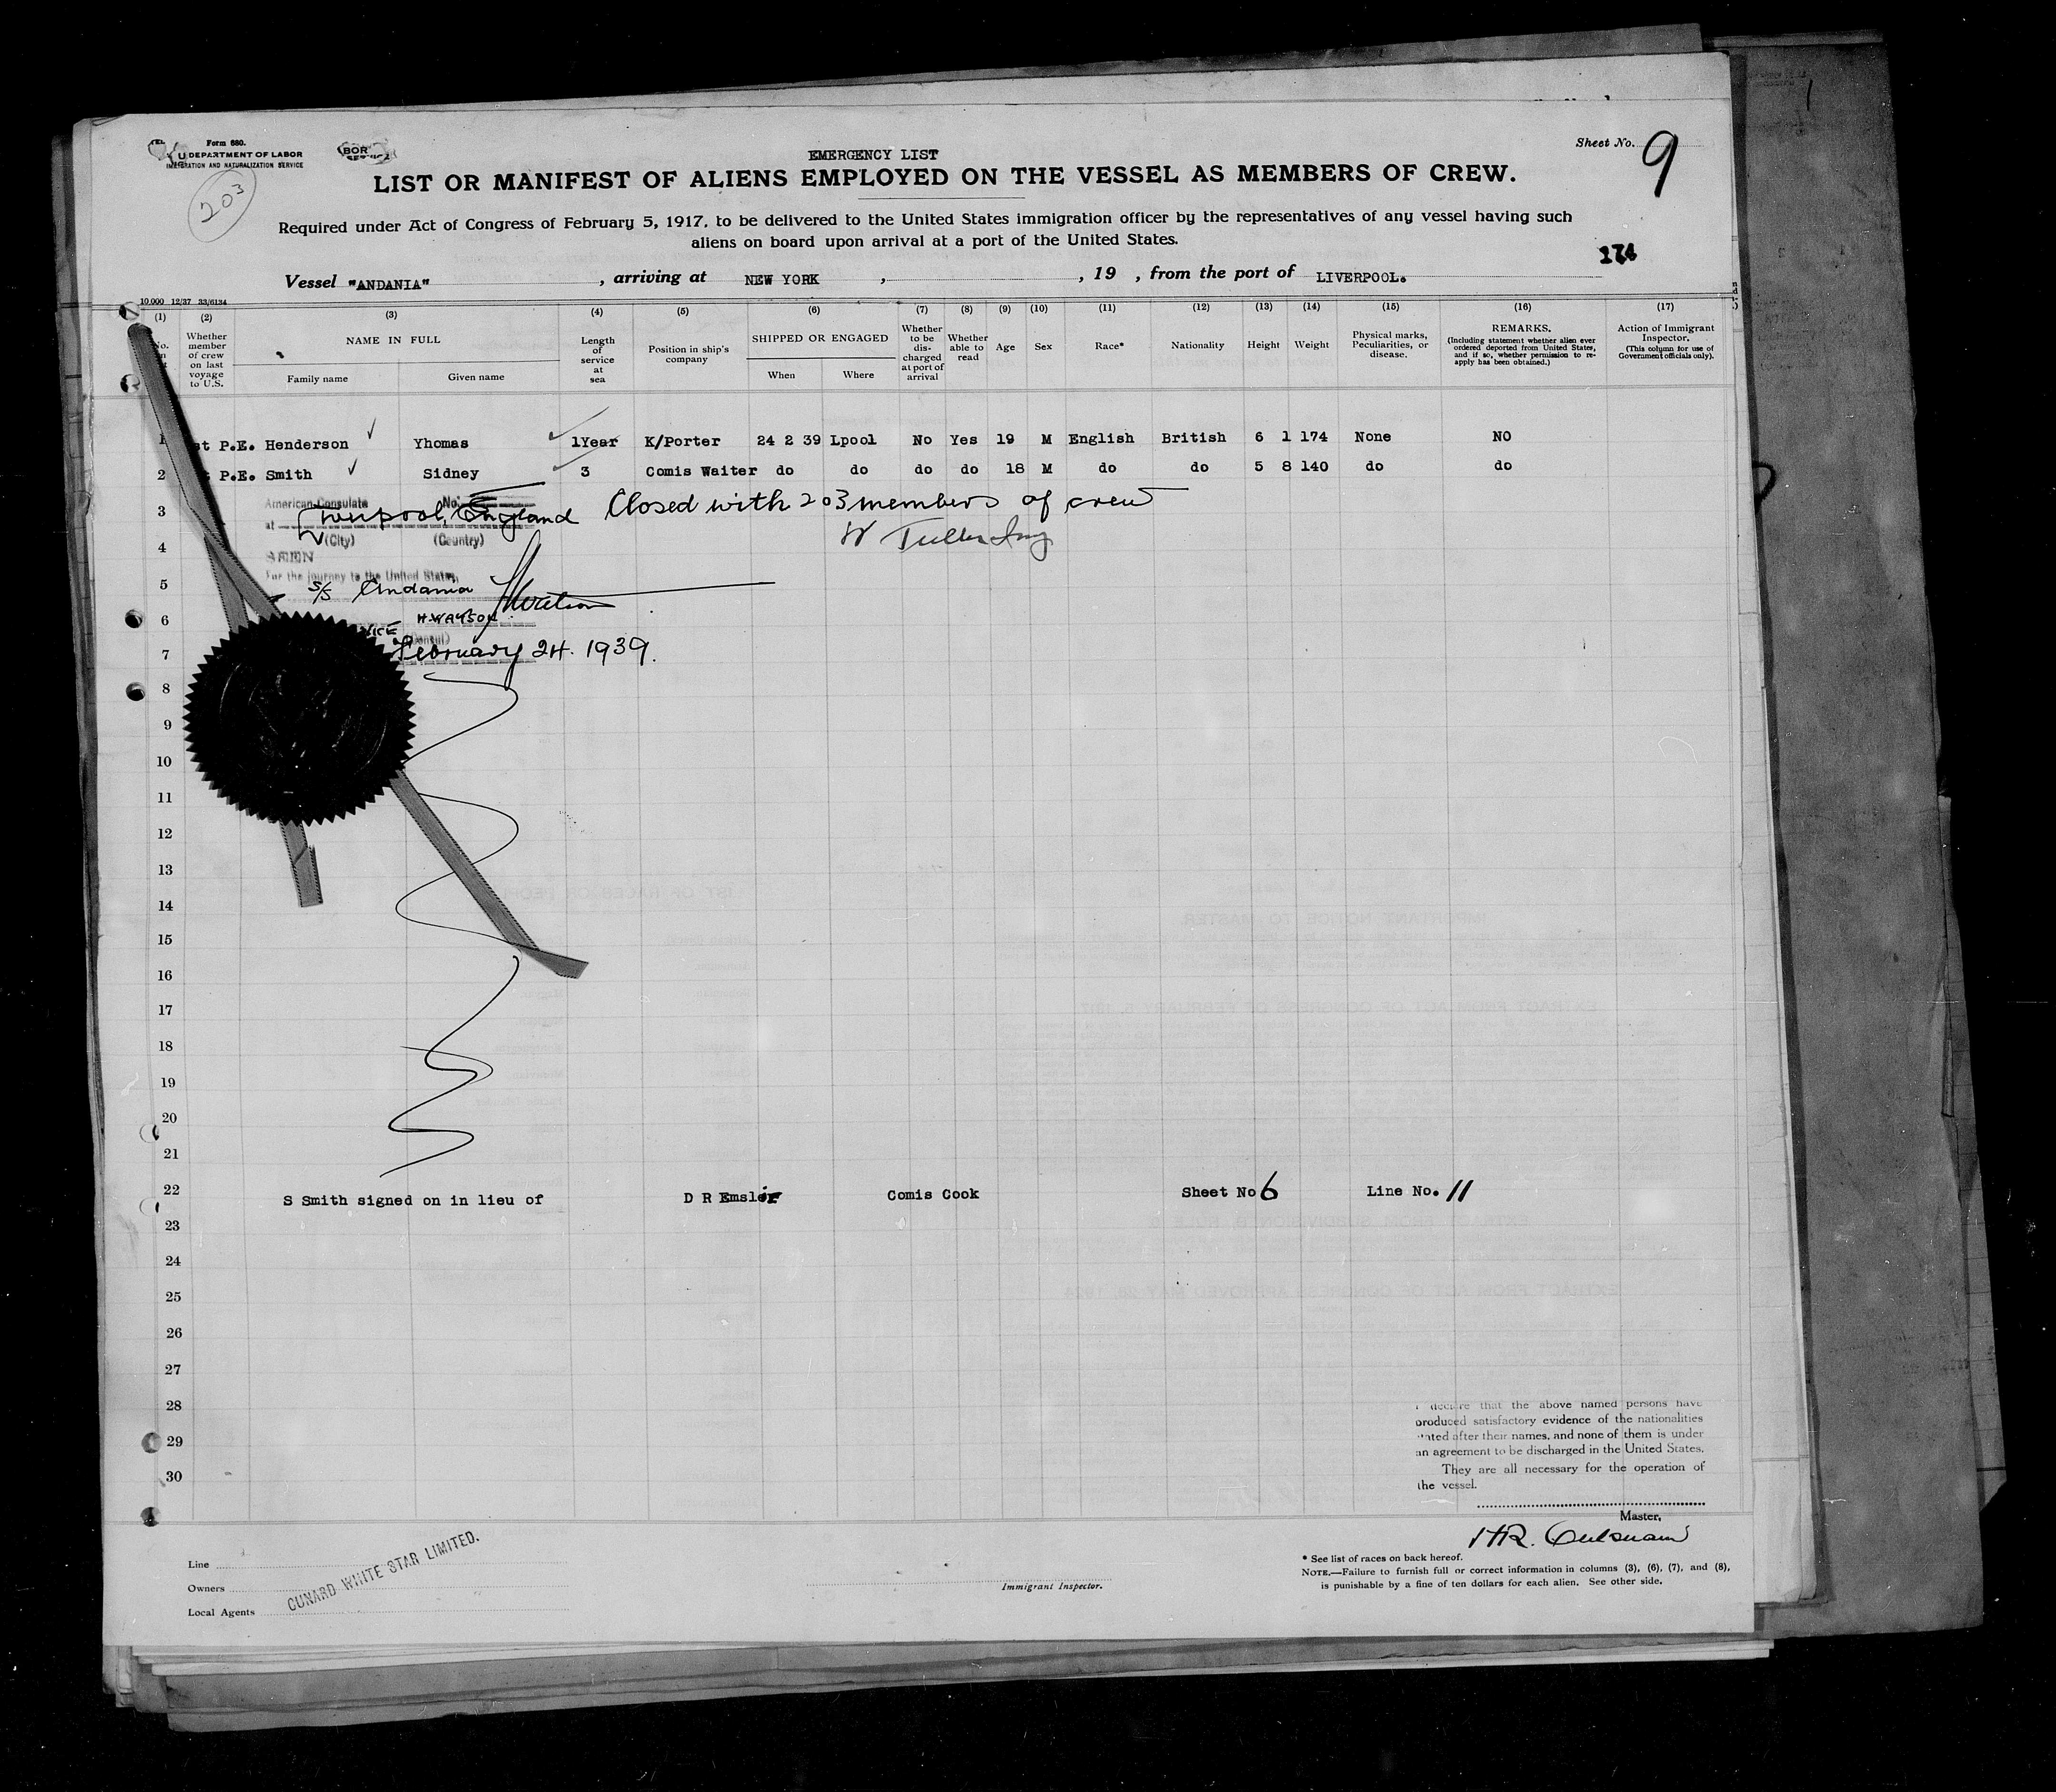 Form 680.
U DEPARTMENT OF LABOR
IMMIGRATION AND NATURALIZATION SERVICE
203
EMERGENCY LIST
Sheet No. 9
LIST OR MANIFEST OF ALIENS EMPLOYED ON THE VESSEL AS MEMBERS OF CREW.
Required under Act of Congress of February 5, 1917, to be delivered to the United States immigration officer by the representatives of any vessel having such
aliens on board upon arrival at a port of the United States.
Vessel "ANDANIA", arriving at NEW YORK, , 19 , from the port of LIVERPOOL.
10,000 12/37 33/6134
(1) (2) (3) (4) (5) (6) (7) (8) (9) (10) (11) (12) (13) (14) (15) (16) (17)
No.
Whether member of crew on last voyage to U.S.
NAME IN FULL
Family name Given name
Length of service at sea
Position in ship's company
SHIPPED OR ENGAGED
When Where
Whether to be discharged at port of arrival
Whether able to read
Age
Sex
Race*
Nationality
Height
Weight
Physical marks, Peculiarities, or disease.
REMARKS.
(Including statement whether alien ever ordered deported from United States, and if so, whether permission to reapply has been obtained.)
Action of Immigrant Inspector.
(This column for use of Government officials only).
1 st P.E. Henderson Yhomas 1Year K/Porter 24 2 39 Lpool No Yes 19 M English British 6 1 174 None NO
2 P.E. Smith Sidney 3 Comis Waiter do do do do 18 M do do 5 8 140 do do
American Consulate No.
3 at Liverpool, England Closed with 203 members of crew
(City) (Country)
4
SEEN
For the journey to the United States,
5 s/s Andania
6 H.WATSON
VICE (Consul)
7 February 24. 1939.
8
9
10
11
12
13
14
15
16
17
18
19
20
21
22 S Smith signed on in lieu of D R Emslie Comis Cook Sheet No 6 Line No. 11
23
24
25
26
27
28
29
30
I declare that the above named persons have
produced satisfactory evidence of the nationalities
stated after their names, and none of them is under
an agreement to be discharged in the United States.
They are all necessary for the operation of
the vessel.
Master.
Line
Owners
Local Agents
CUNARD WHITE STAR LIMITED.
Immigrant Inspector.
* See list of races on back hereof.
NOTE.—Failure to furnish full or correct information in columns (3), (6), (7), and (8),
is punishable by a fine of ten dollars for each alien. See other side.